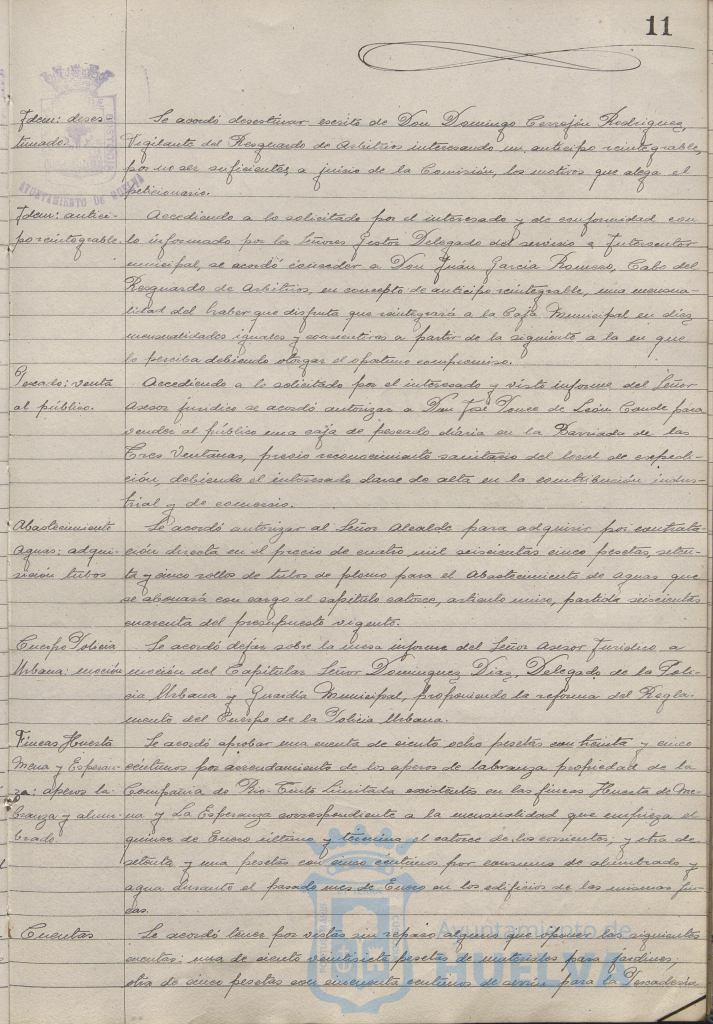 11
Idem: deses-
timado.
Se acordó desestimar escrito de Don Domingo Cerrejón Rodriguez,
Vigilante del Resguardo de Arbitrios interesando un anticipo reintegrable,
por no ser suficientes, a juicio de la Comisión, los motivos que alega el
peticionario.
AYUNTAMIENTO DE HUELVA
Idem: antici-
po reintegrable.
Accediendo a lo solicitado por el interesado y de conformidad con
lo informado por los Señores Gestor Delegado del servicio e Interventor
municipal, se acordó conceder a Don Juán Garcia Romero, Cabo del
Resguardo de Arbitrios, en concepto de anticipo reintegrable, una mensua-
lidad del haber que disfruta que reintegrará a la Caja Municipal en diez
mensualidades iguales y consecutivas a partir de la siguiente a la en que
lo perciba debiendo otorgar el oportuno compromiso.
Pescado: venta
al público.
Accediendo a lo solicitado por el interesado y visto informe del Señor
Asesor juridico se acordó autorizar a Don José Ponce de León Conde para
vender al público una caja de pescado diaria en la Barriada de las
Tres Ventanas, previo reconocimiento sanitario del local de expedi-
ción, debiendo el interesado darse de alta en la contribución indus-
trial y de comercio.
Abastecimiento
Aguas: adqui-
sición tubos
Se acordó autorizar al Señor Alcalde para adquirir por contrata-
ción directa en el precio de cuatro mil seiscientas cinco pesetas, seten-
ta y cinco rollos de tubos de plomo para el Abastecimiento de Aguas que
se abonará con cargo al capitulo catorce, articulo unico, partida seiscientas
cuarenta del presupuesto vigente.
Cuerpo Policia
Urbana: moción
Se acordó dejar sobre la mesa informe del Señor Asesor Juridico, a
moción del Capitular Señor Dominguez Diaz, Delegado de la Poli-
cia Urbana y Guardia Municipal, proponiendo la reforma del Regla-
mento del Cuerpo de la Policia Urbana.
Fincas Huerta
Mena y Esperan-
za: aperos la-
branza y alum-
brado
Se acordó aprobar una cuenta de ciento ocho pesetas con treinta y cinco
céntimos por arrendamiento de los aperos de labranza propiedad de la
Compañia de Rio-Tinto Limitada existentes en las fincas Huerta de Me-
na y La Esperanza correspondiente a la mensualidad que empieza el
quince de Enero ultimo y termina el catorce de los corrientes; y otra de
setenta y una pesetas con cinco céntimos por consumo de alumbrado y
agua durante el pasado mes de Enero en los edificios de las mismas fin-
cas.
Cuentas
Se acordó tener por vistas sin reparo alguno que oponer las siguientes
cuentas: una de ciento veintisiete pesetas de materiales para jardines;
otra de cinco pesetas con cincuenta centimos de serrin para la Pescaderia
Ayuntamiento de
HUELVA